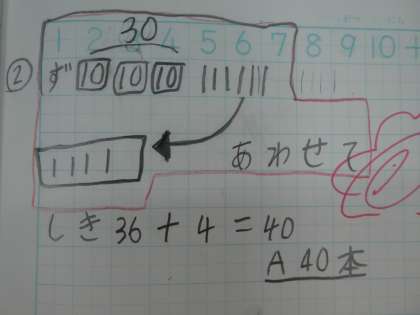 30
1 2 3 4 5 6 7 8 9 10
② ず 10 10 10
あわせて
しき 36 + 4 = 40
A 40本